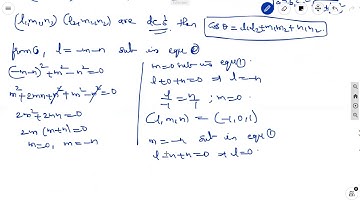 (l₁,m₁,n₁) (l₂,m₂,n₂) are dc's. then cosθ = l₁l₂+m₁m₂+n₁n₂.
from ①, l = -m-n sub in equ ②
(-m-n)²+m²-n²=0
m²+2mn+n²+m²-n²=0
2m²+2mn=0
2m(m+n)=0
m=0, m=-n
m=0 sub in equ ①.
l+0+n=0 ⇒ l=-n
l/-1 = n/1 ; m=0.
(l,m,n) = (-1,0,1)
m=-n sub in equ ①
l-n+n=0 ⇒ l=0.